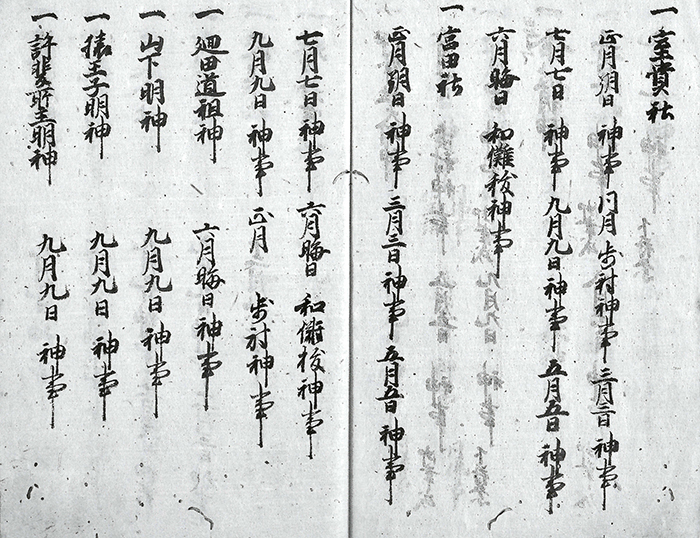 一室貴社
正月朔日 神事 同月歩射神事 三月三日 神事
七月七日 神事 九月九日神事 五月五日 神事
六月晦日 和儺秡神事
一宮田社
正月朔日 神事 三月三日神事 五月五日 神事
七月七日 神事 六月晦日 和儺秡神事
九月九日 神事 正月 歩射神事
一廻田道祖神 六月晦日神事
一山下明神 九月九日 神事
一猿王子明神 九月九日 神事
一許斐野王明神 九月九日 神事